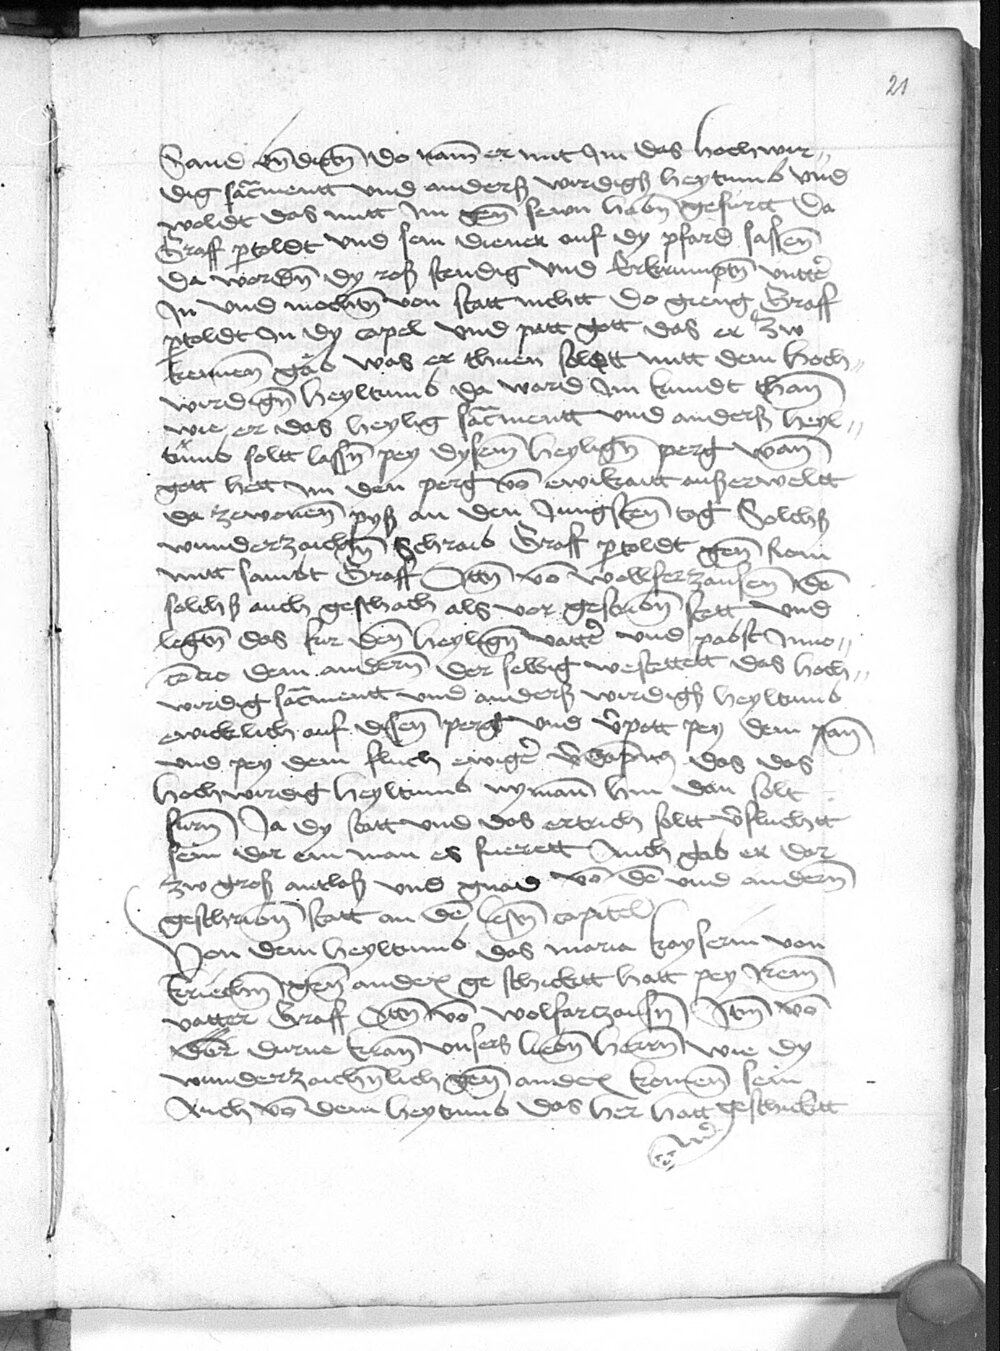 21
Sand do nam er mit Im das hochwir„
dig sacmentt vnd anders wirdigs heyltumb vnd
woldt das mitt Im gen sewn haben gefurtt Da
Graff ptoldt vnd sein diener auf dy pfard sassen
da worden dy roß stendig vnd erkrumpten vntter
In vnd mochten von statt nichtt do gieng Graff
ptoldt In dy capel vnd patt gott das er Im zw
kennen gäb was er thuen soldt mitt dem hoch„
wirdign heyltumb da ward Im kundt than
wie er das heylig sacmentt vnd anders heyl„
tumb soltt lassn pey dysem heylign perg wan
gott hett Im den perg vo ewikaitt außerweltt
da zewonen pyß an den Jungsten tag Solchs
wunderzaichn Schraib Graff ptoldt gen Rom
mitt sambt Graff Otten vo wolffertzausen de
solichs auch geschach als vor geschriben stett vnd
legten das fur den heylign vatter vnd pabst Inno„
dem andern der selbig westettett das hoch„
wirdig sacmentt vnd anders wirdigs heyltumb
ewicklich auf disen perg vnd vpott pey dem pan
vnd pey dem fluch ewiger das das
hochwirdig heyltumb nyman hin dan solt
furn Ja dy statt vnd das ertrich soltt vfluchtt
sein dar ein man es fuerett Auch gab er dar
zw groß antlaß vnd gnad vo de vnd andern
geschriben statt an de lesten capitel
Von dem heyltumb das maria kayserin von
kriechn gen anderx geschicktt hatt pey Irem
vatter Graff Otten vo wolfartzausn Item vo
der durne kran vnsers lieben herrn wie dy
wunderzaichnlich gen anderx komen sein
Auch vo dem heyltumb das her hatt geschicktt